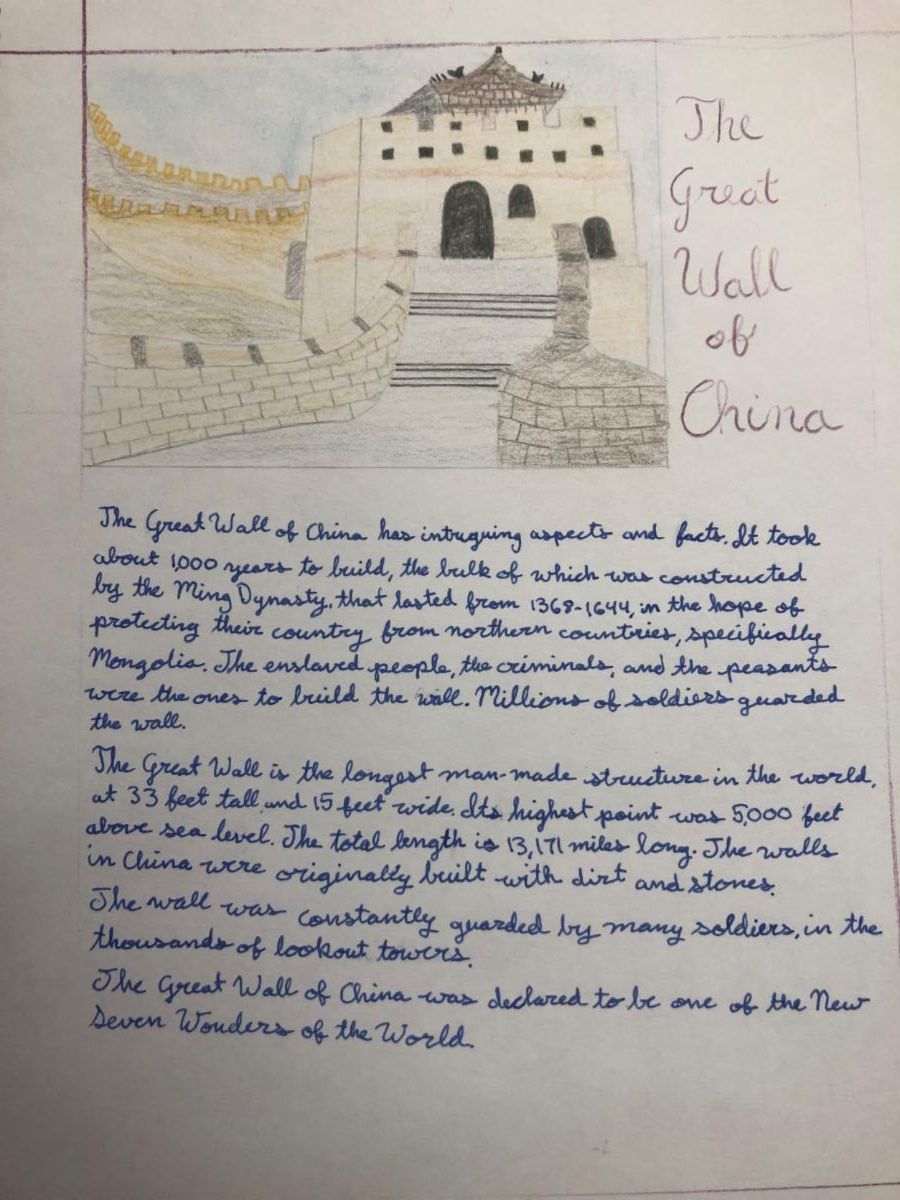 The
Great
Wall
of
China
The Great Wall of China has intruguing aspects and facts. It took
about 1,000 years to build, the bulk of which was constructed
by the Ming Dynasty, that lasted from 1368-1644, in the hope of
protecting their country from northern countries, specifically
Mongolia. The enslaved people, the criminals, and the peasants
were the ones to build the wall. Millions of soldiers guarded
the wall.
The Great Wall is the longest man-made structure in the world,
at 33 feet tall and 15 feet wide. Its highest point was 5,000 feet
above sea level. The total length is 13,171 miles long. The walls
in China were originally built with dirt and stones.
The wall was constantly guarded by many soldiers, in the
thousands of lookout towers.
The Great Wall of China was declared to be one of the New
Seven Wonders of the World.